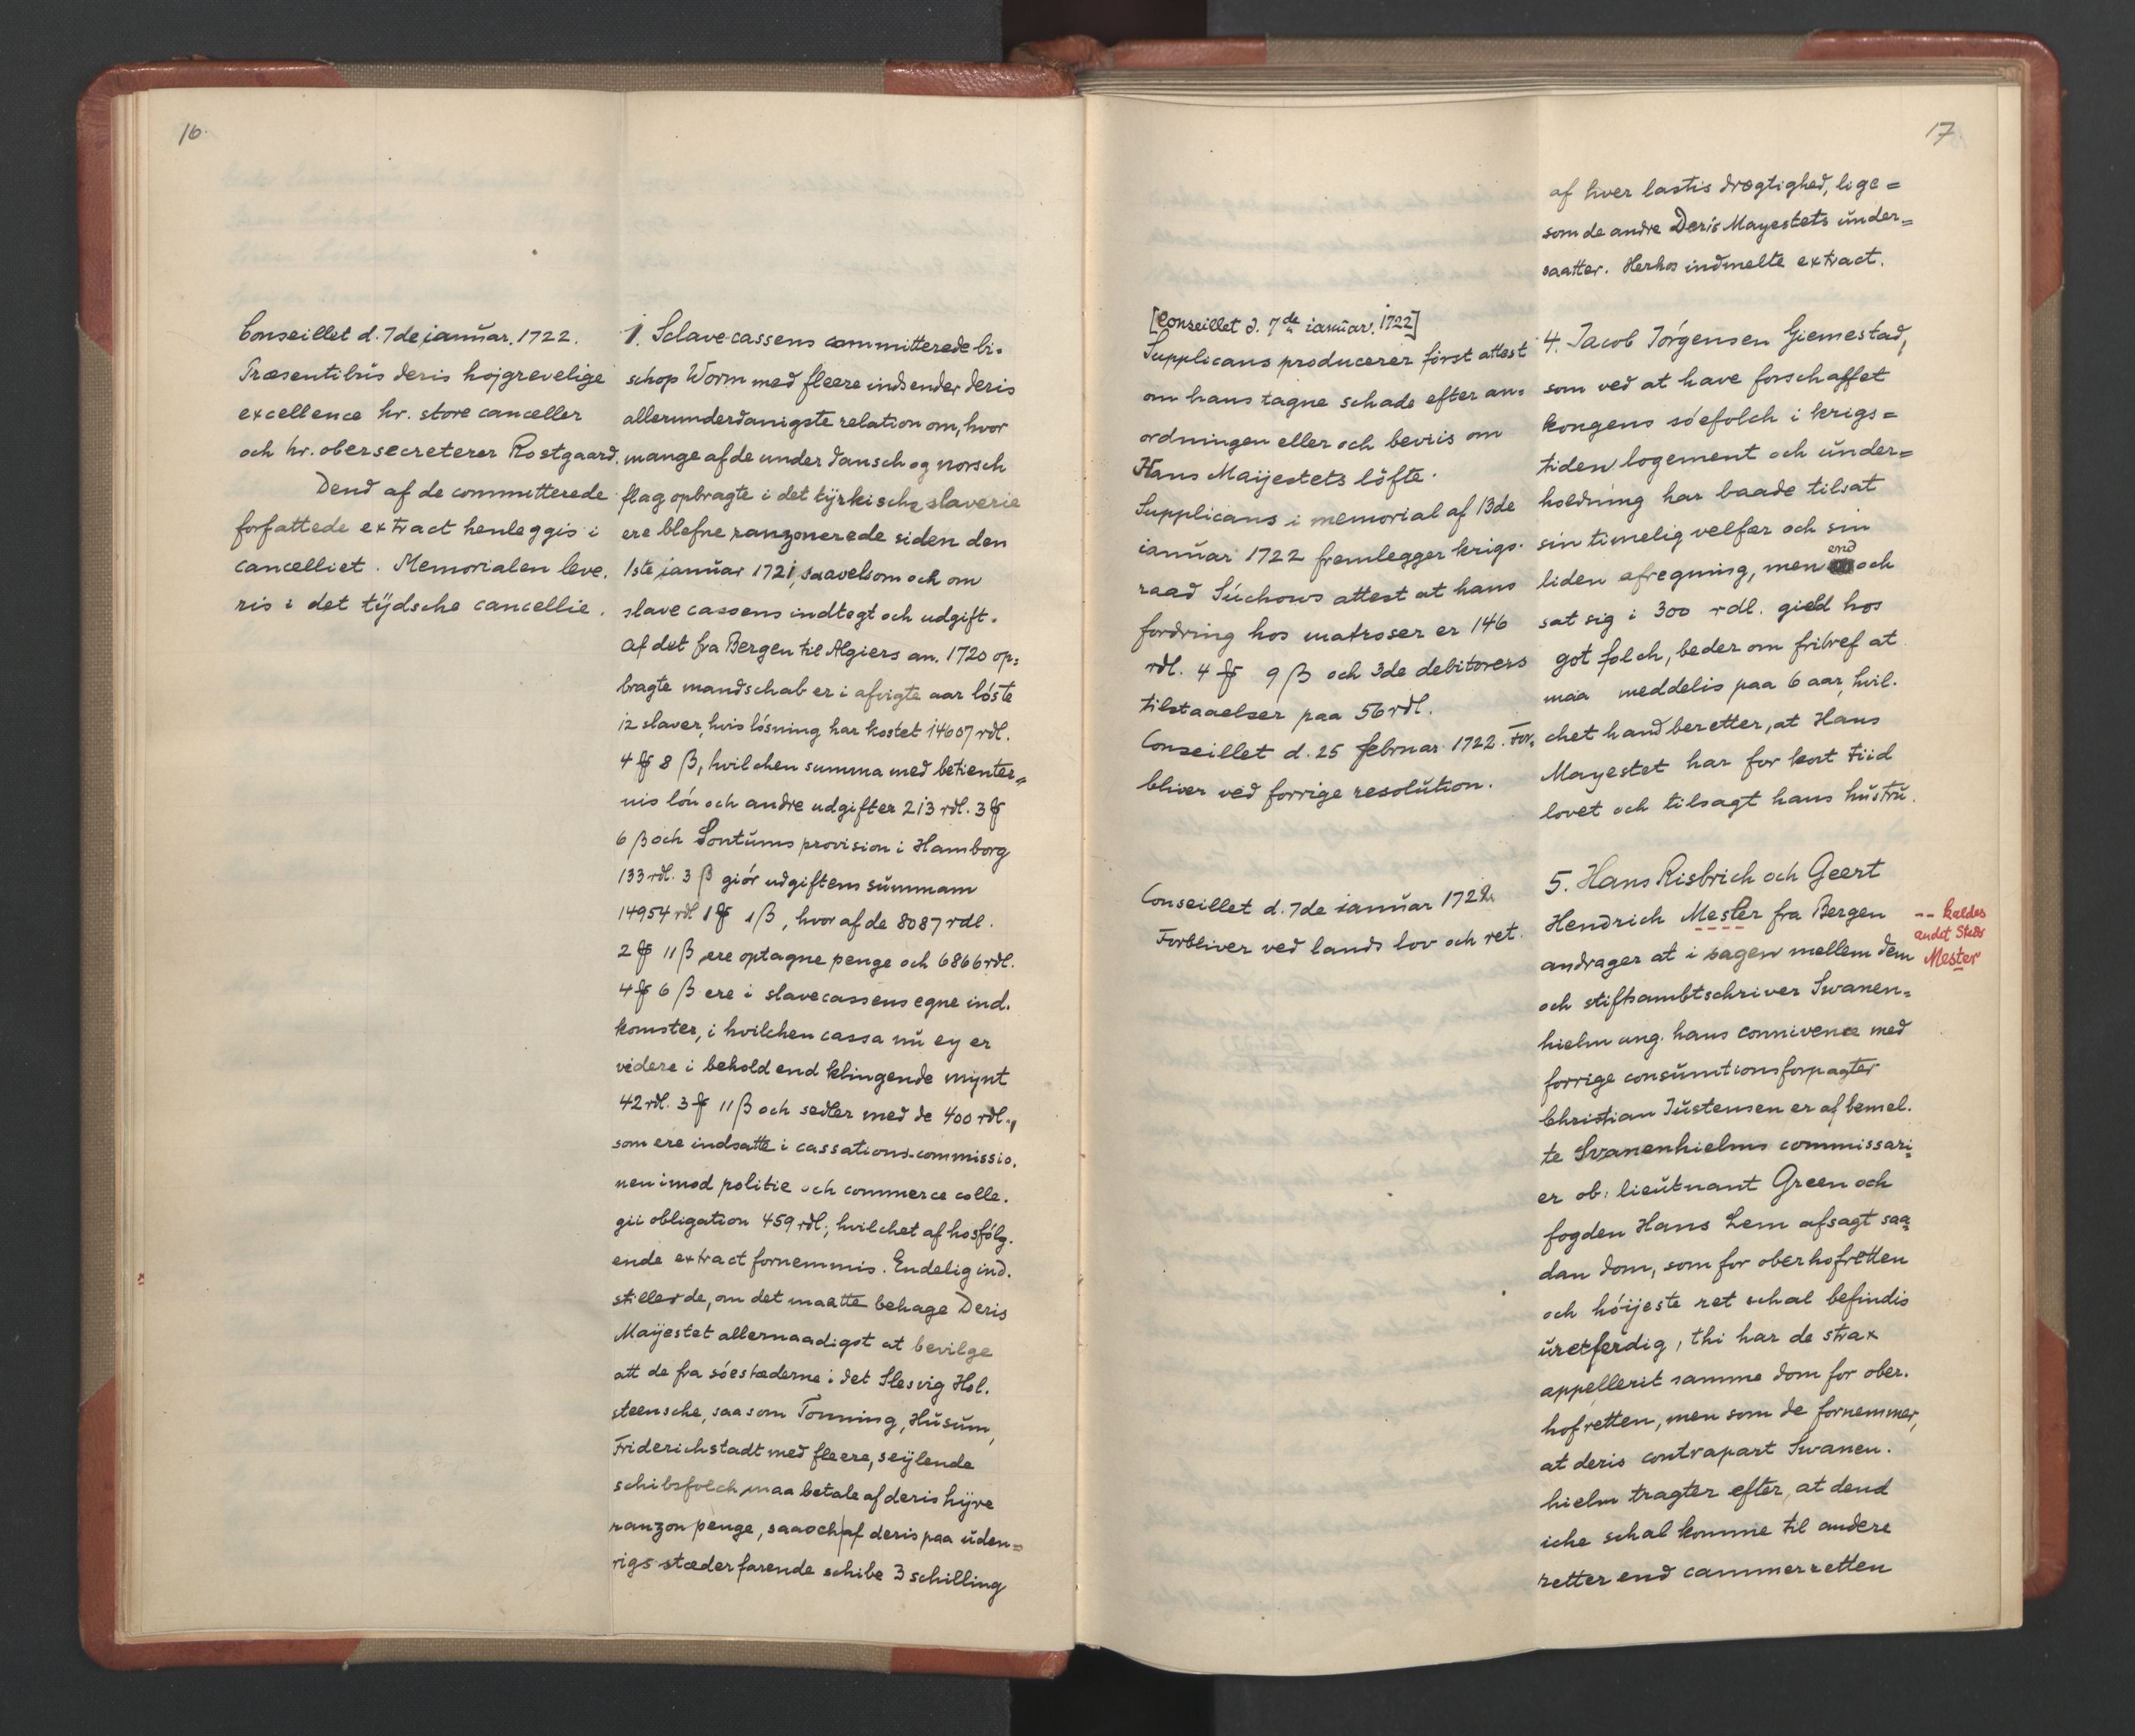 16.
Conseillet d. 7de januar. 1722.
Præsentibus deris højgrevelige
excellence hr. store canceller
och hr. obersecreterer Rostgaard.
Dend af de committerede
forfattede extract henleggis i
cancelliet. Memorialen leve-
ris i det tÿdsche cancellie.
1. Sclavecassens committerede bi-
schop Worm med fleere indsender deris
allerunderdanigste relation om, hvor
mange af de under dansch og norsch
flag opbragte i det tÿrkische slaverie
ere blefne ranzonerede siden den
1ste januar 1721, saavelsom och om
slavecassens indtegt och udgift.
Af det fra Bergen til Algiers an. 1720 op=
bragte mandschab er i afvigte aar löste
12 slaver, hvis lösning har kostet 14607 rdl.
4 ꝟ 8 β, hvilchen summa med betienter=
nis lön och andre udgifter 213 rdl. 3 ꝟ
6 β och Sontums provision i Hamborg
133 rdl. 3 β giör udgiftens summam
14954 rdl 1 ꝟ 1 β, hvoraf de 8087 rdl.
2 ꝟ 11 β ere optagne penge och 6866 rdl.
4 ꝟ 6 β ere i slavecassens egne ind-
komster, i hvilchen cassa nu ey er
videre i behold end klingende mÿnt
42 rdl. 3 ꝟ 11 β och sedler med de 400 rdl.,
som ere indsatte i cassations-commissio-
nen imod politie och commerce colle-
gii obligation 459 rdl., hvilchet af hosfölg-
ende extract fornemmis. Endelig ind-
stiller de, om det maatte behage Deris
Maÿestet allernaadigst at bevilge
att de fra söestæderne i det Slesvig Hol-
steensche, saasom Tonning, Husum,
Friderichstadt med fleere, seÿlende
schibsfolch maa betale af deris hÿre
ranzonpenge, saaoch af deris paa uden=
rigs stæder farende schibe 3 schilling
17.
af hver lastis drægtighed, lige=
som de andre Deris Mayestets under=
saatter. Herhos indmelte extract.
[Conseillet d. 7de januar. 1722]
Supplicans producerer først attest
om hans tagne schade efter an-
ordningen eller och beviis om
Hans Maijestets löfte.
Supplicans i memorial af 13de
januar 1722 fremlegger krigs-
raad Súchows attest at hans
fordring hos matroser er 146
rdl. 4 ꝟ 9 β och 3de debitorers
tilstaaelser paa 56 rdl.
Conseillet d. 25 februar 1722. For-
bliver ved forrige resolution.
4. Jacob Jörgensen Giemestad,
som ved at have forschaffet
kongens söefolch i krigs=
tiden logement och under=
holdning har baade tilsat
sin timelig velfær och sin
liden afregning, men end och
sat sig i 300 rdl. gield hos
got folch, beder om fribref at
maa meddelis paa 6 aar, hvil-
chet hand beretter, at Hans
Mayestet har for kort tiid
lovet och tilsagt hans hustru.
Conseillet d. 7de januar 1722.
Forbliver ved lands lov och ret.
5. Hans Risbrich och Geert
Hendrich Mesler fra Bergen
andrager at i sagen mellem dem
och stiftsambtschriver Svanen=
hielm ang. hans connivence med
forrige consumtionsforpagter
Christian Justensen er af bemel-
te Svanenhielms commissari=
er ob: lieutnant Green och
fogden Hans Lem afsagt saa=
dan dom, som for oberhofretten
och höijeste ret schal befindis
uretferdig, thi har de strax
appellerit samme dom for ober-
hofretten, men som de fornemmer,
at deris contrapart Svanen-
hielm tragter efter, at dend
iche schal komme til andere
retter end cammerretten
-- kaldes
andet Steds
Mester